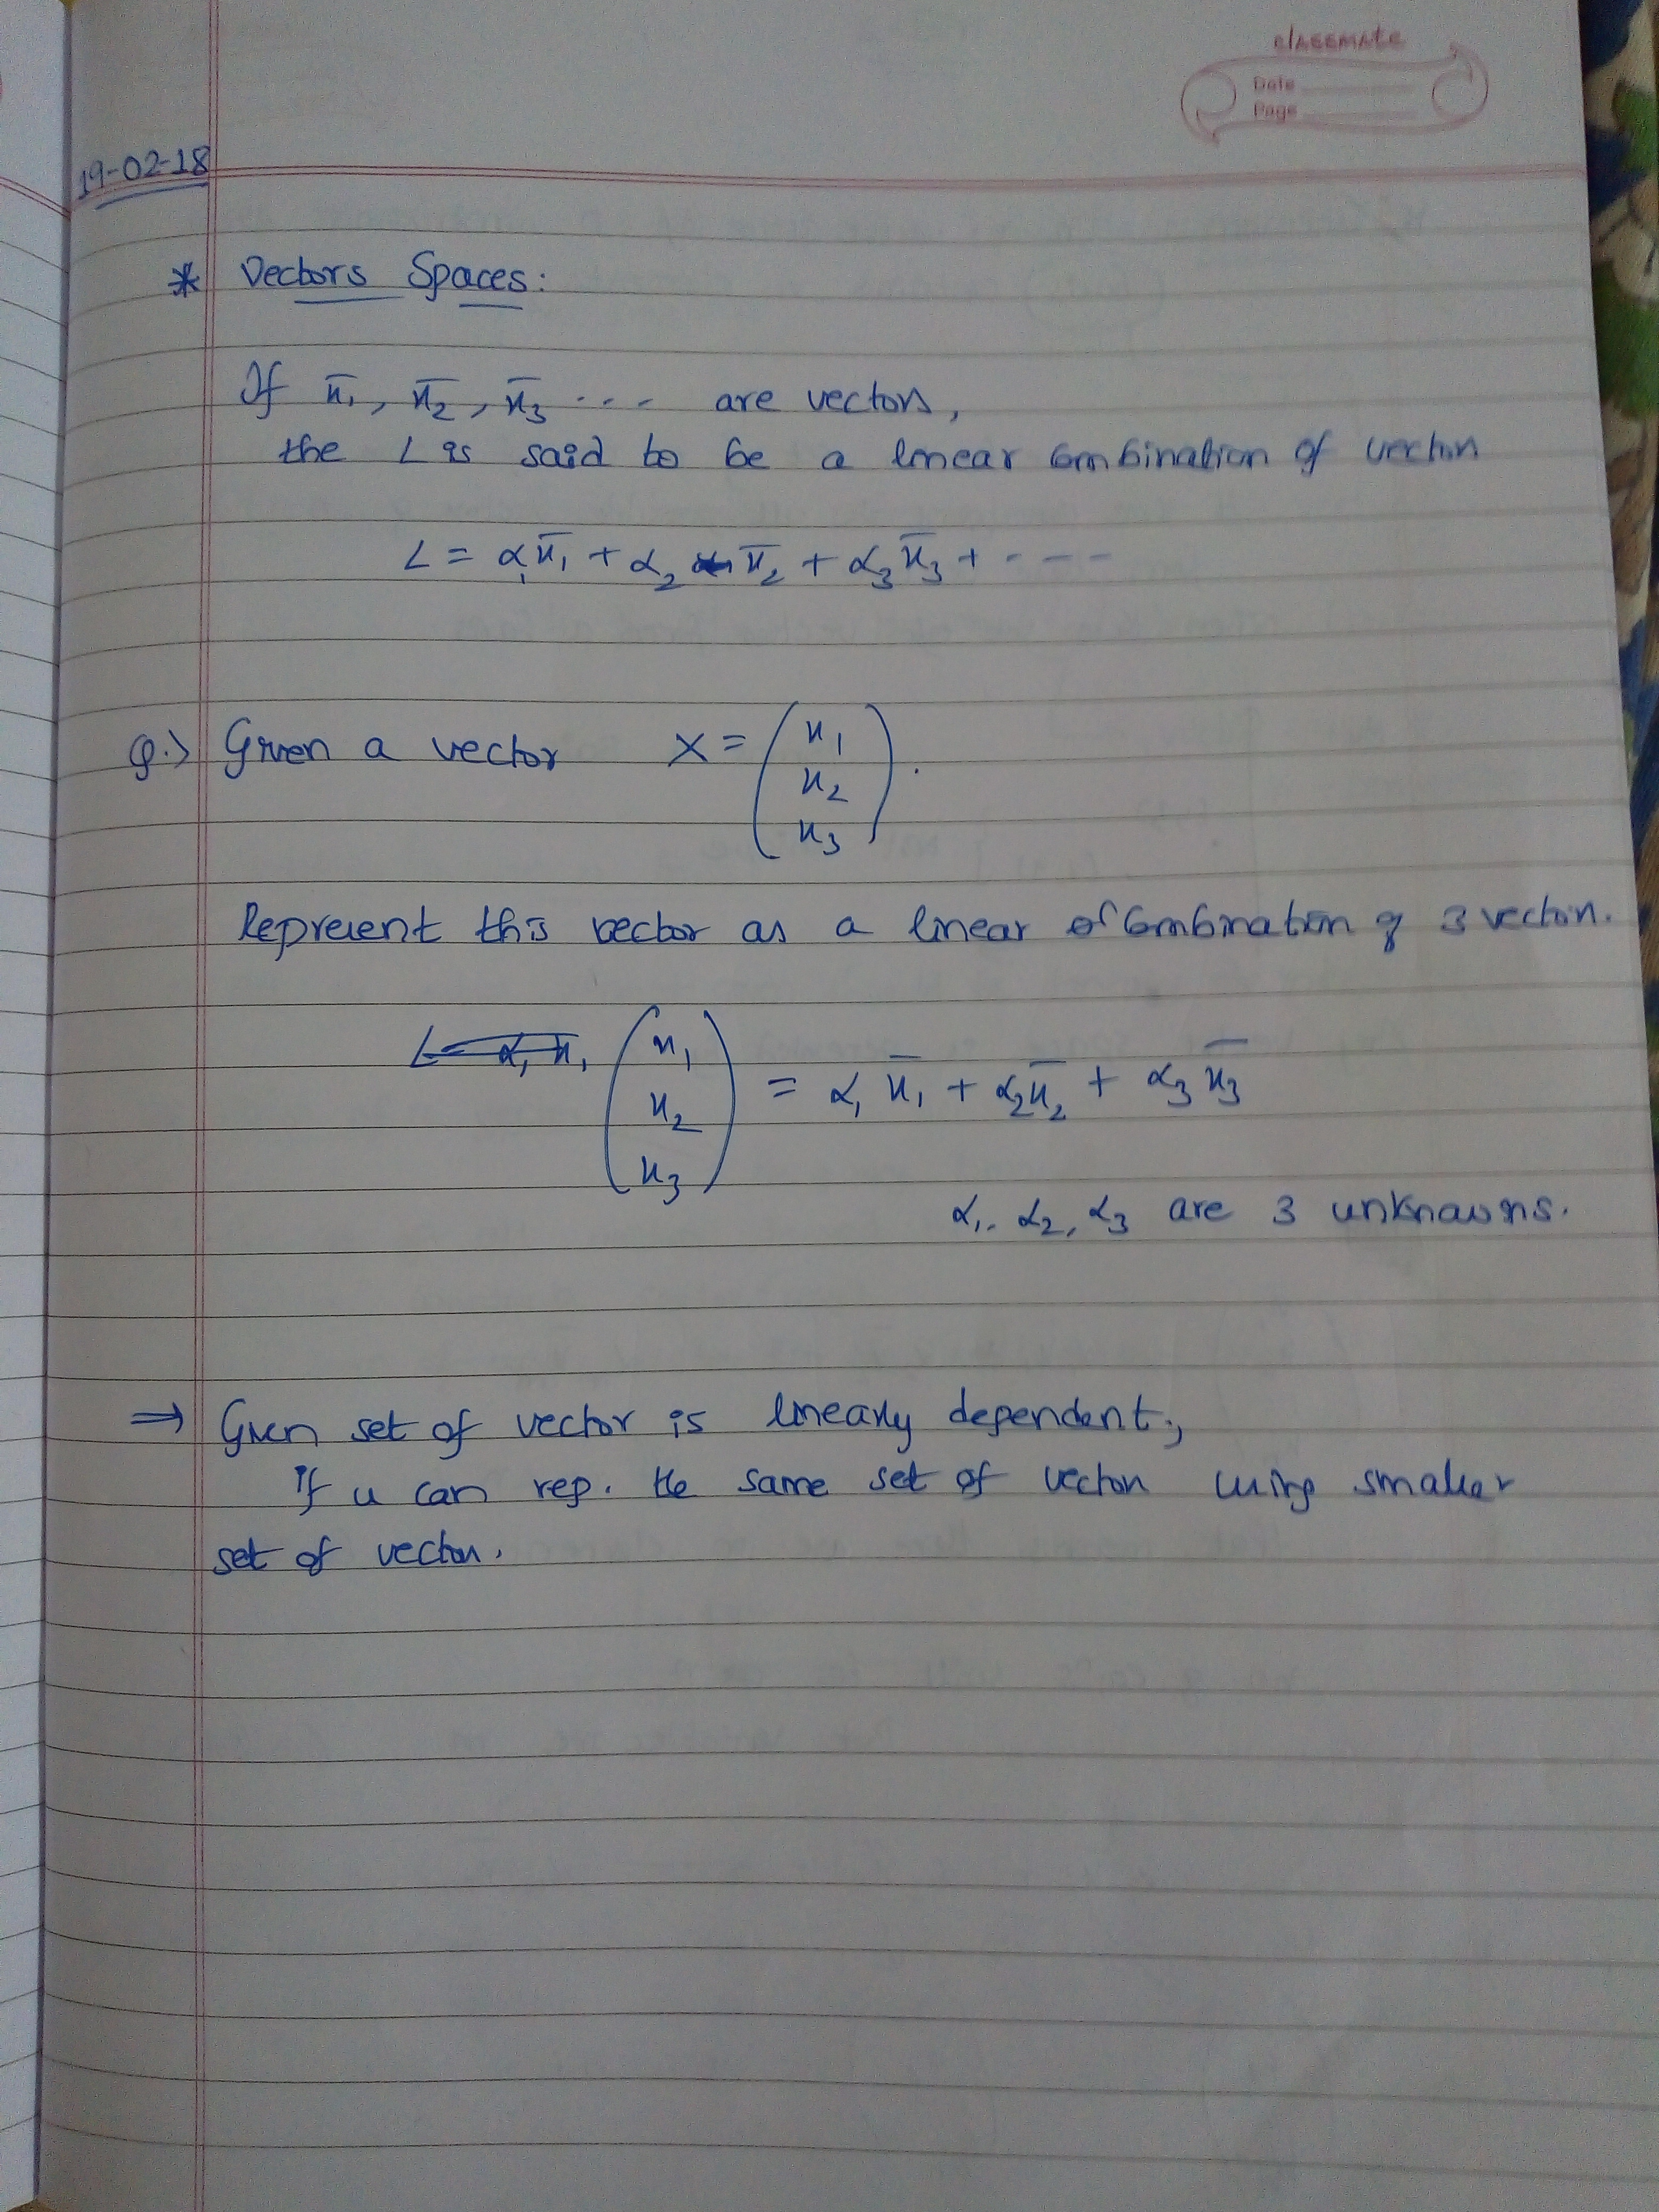 classmate
Date
Page
19-02-18
* Vectors Spaces:
If x̄₁, x̄₂, x̄₃ ... are vectors,
the L is said to be a linear combination of vectors
L = α₁x̄₁ + α₂ x̄₂ + α₃x̄₃ + ----
Q.> Given a vector X = (x₁
x₂
x₃).
Represent this vector as a linear of combination of 3 vectors.
L = α₁x̄₁ (x₁
x₂
x₃) = α₁ x̄₁ + α₂x̄₂ + α₃ x̄₃
α₁, α₂, α₃ are 3 unknowns.
⇒ Given set of vector is linearly dependent,
if u can rep. the same set of vectors using smaller
set of vectors.